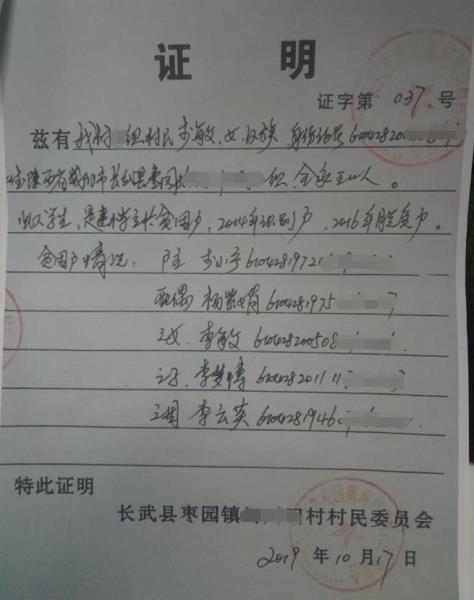 证 明
证字第 037 号
兹有 我村 组村民 李敏, 女, 汉族 身份证号 61042820
住陕西省咸阳市长武县枣园 组, 全家五口人。
此人学生, 是建档立卡贫困户, 2014年识别户, 2016年脱贫户。
贫困户情况: 户主 李 61042819721
配偶 杨 娟 6104281975
之女 李敏 610428200508
之子 李梦博 610428201111
之母 李云英 6104281946
特此证明
长武县枣园镇 村村民委员会
2019 年 10 月 17 日